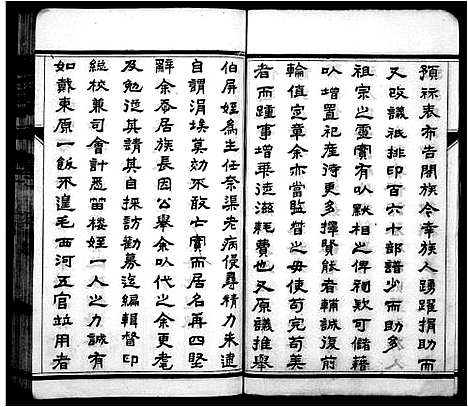 預祘表布告閤族今幸族人踴躍捐助而
又改議祇排印百六十部譜少而助多
祖宗之靈實有以默相之俾剞欵可儲藉
以增置祀產待更多擇賢能者輔誠復前
輪值定章余亦當監督之毋使苟完苟美
者而踵事增華徒滋耗費也又原議推舉
伯屏姪為主任奈渠老病侵尋精力未逮
自謂涓埃莫効不敢亡實而居名再四堅
辭余忝居族長因公舉余以代之余更耄
及勉從其請其自採訪勸募迄編輯督印
總校兼司會計悉笛樓姪一人之力誠有
如戴東原一飯不遑毛西河五官竝用者